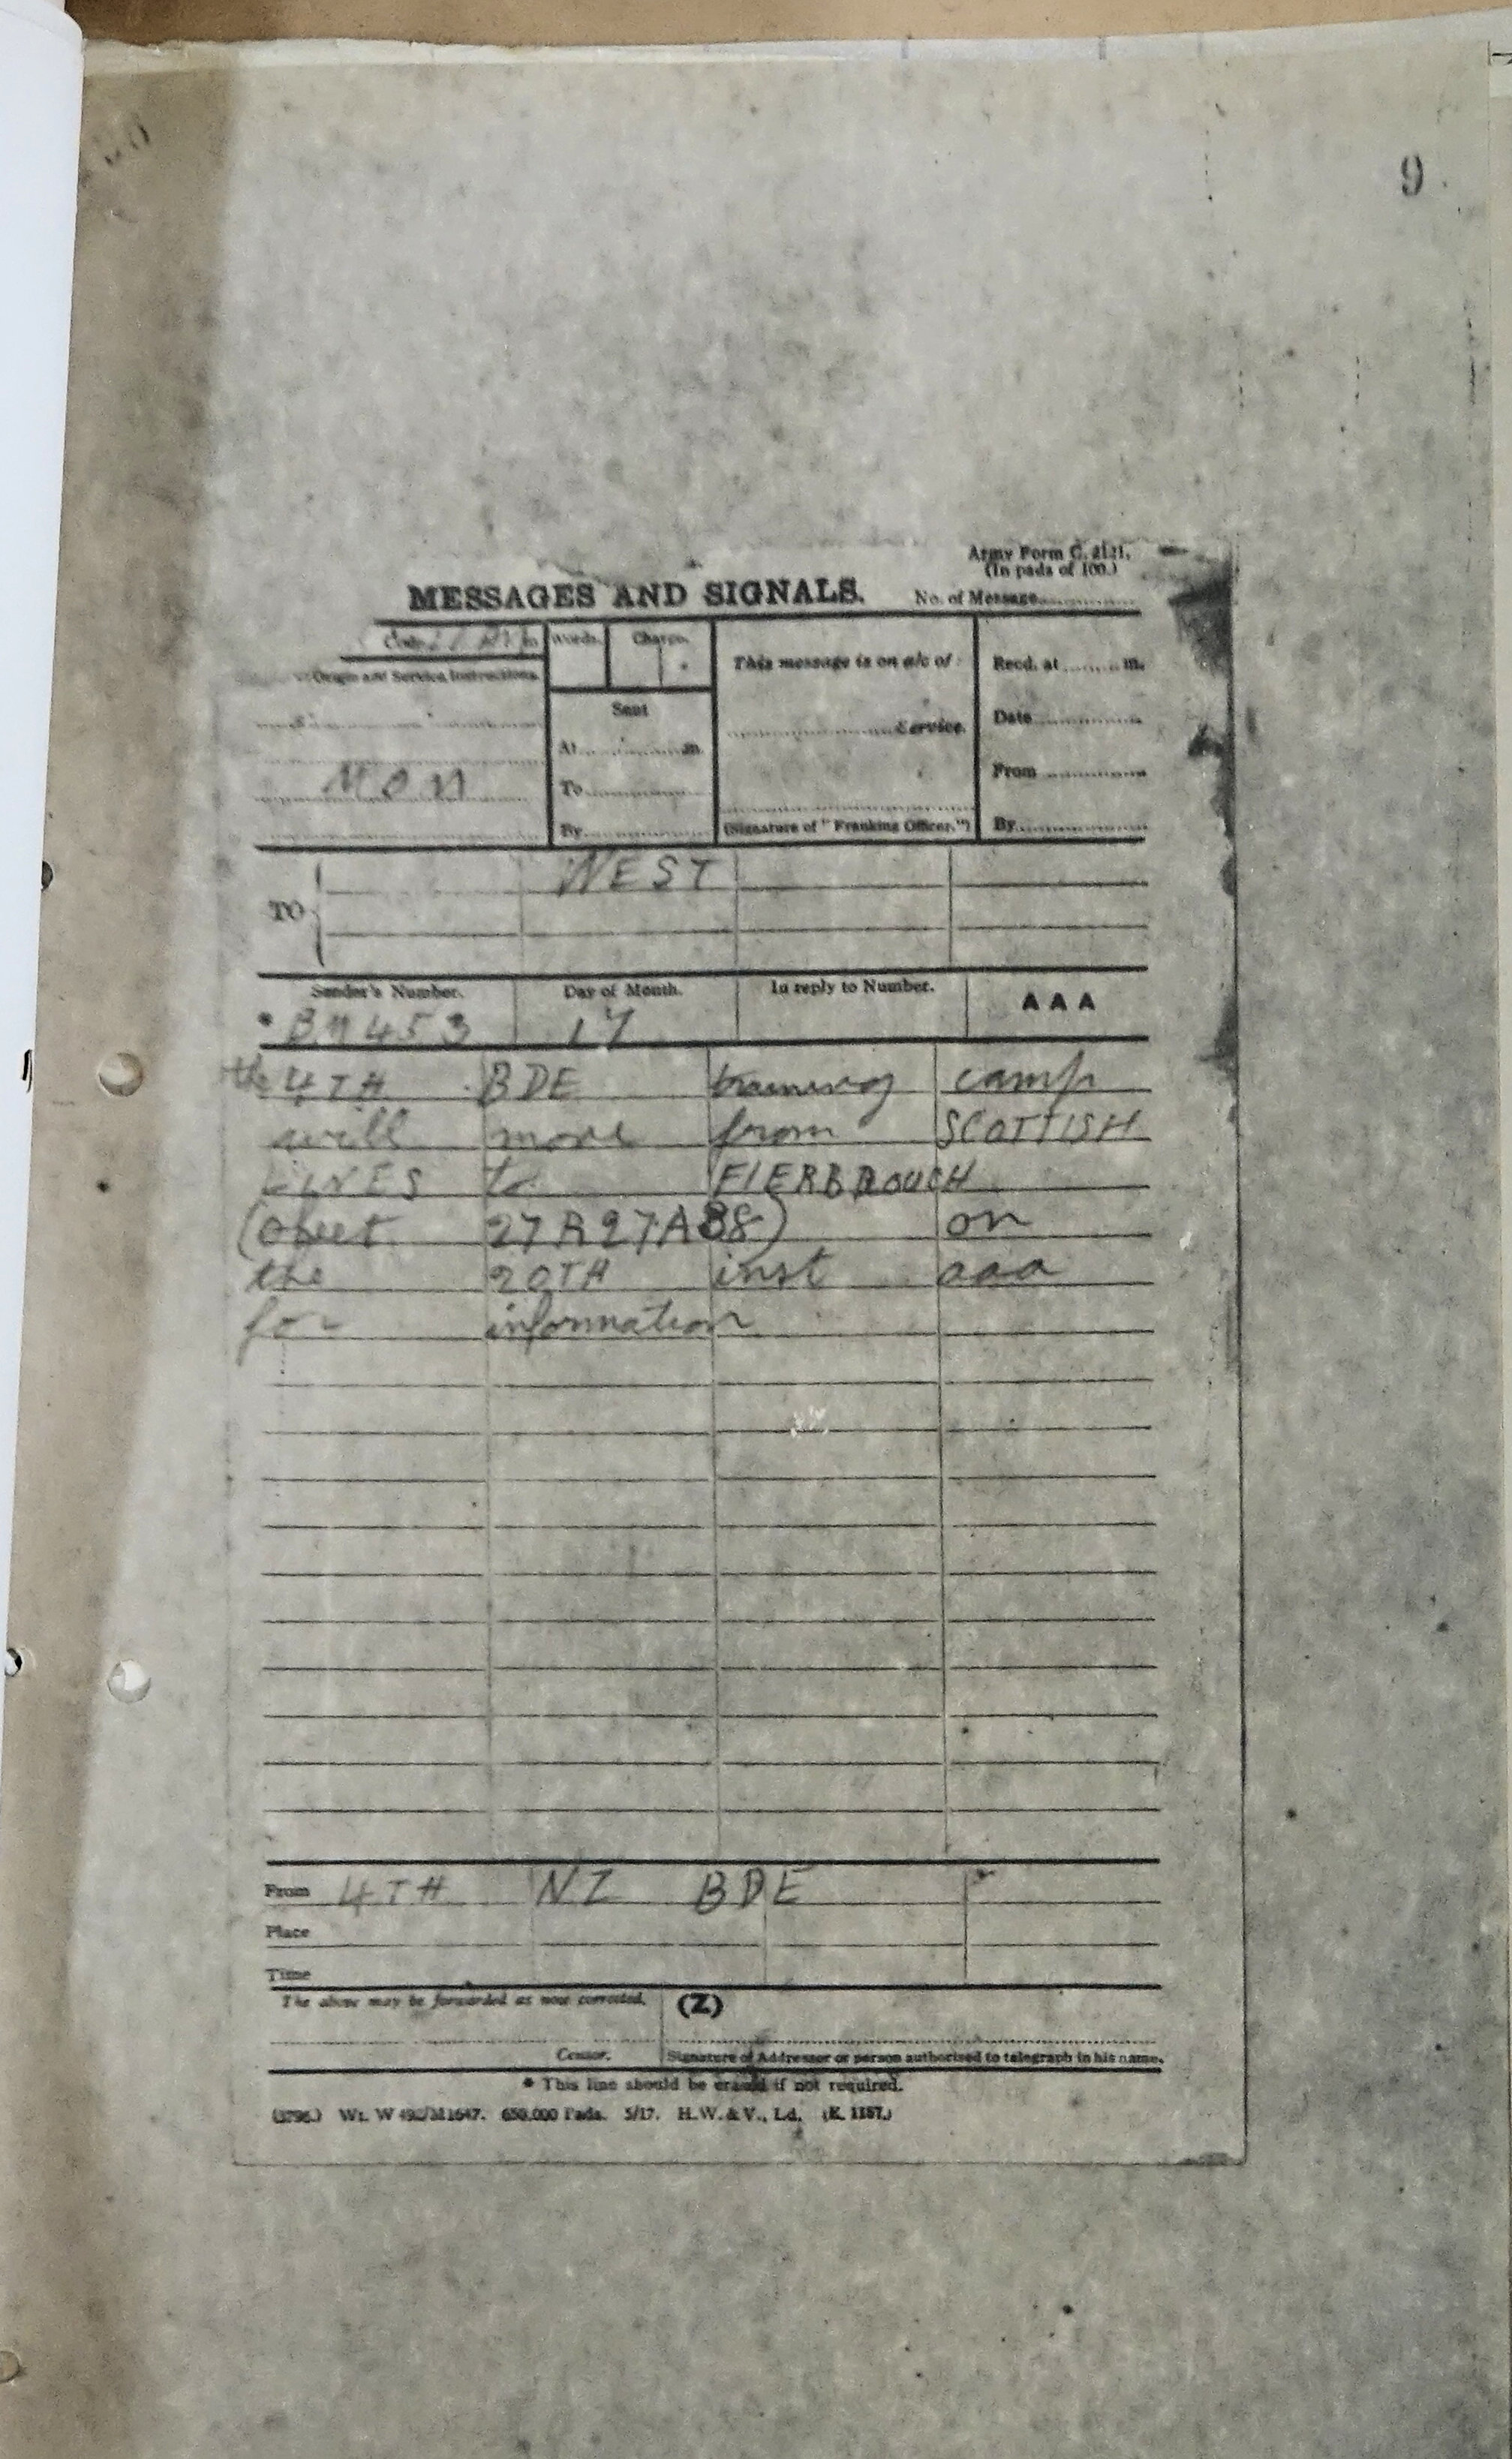 9
Army Form C. 2121.
(In pads of 100.)
MESSAGES AND SIGNALS. No. of Message
Code Words. Charge.
This message is on a/c of:
Recd. at m.
Origin and Service Instructions.
Sent
Service.
Date
At m.
From
MON
To
By
(Signature of "Franking Officer.")
By
WEST
TO
Sender's Number. Day of Month. In reply to Number. AAA
* BM 453 17
the 4TH BDE training camp
will move from SCOTTISH
LINES to FIERBROUCH
(Sheet 27 R 27 A 88) on
the 20TH inst aaa
for information
From 4TH NZ BDE
Place
Time
The above may be forwarded as now corrected. (Z)
Censor. Signature of Addressor or person authorised to telegraph in his name.
* This line should be erased if not required.
Wt. W 650,000 Pads. 5/17. H.W.&V., Ld. (E. 1187.)